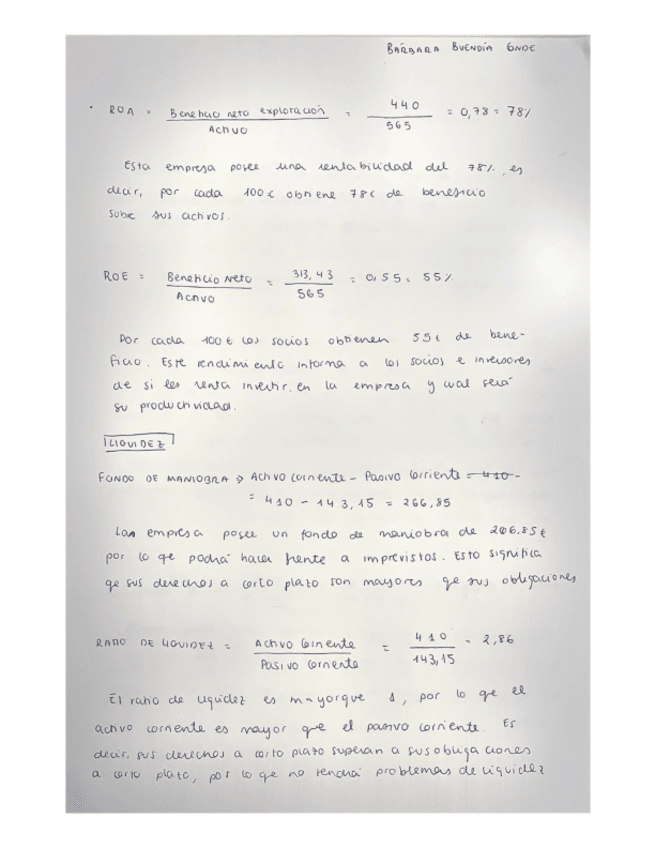 BÁRBARA BUENDÍA CONDE
· ROA = Beneficio neto exploración / Activo = 440 / 565 = 0,78 = 78%
Esta empresa posee una rentabilidad del 78%, es
decir, por cada 100€ obtiene 78€ de beneficio
sobre sus activos.
ROE = Beneficio Neto / Activo = 313,43 / 565 = 0,55 = 55%
Por cada 100€ los socios obtienen 55€ de bene-
ficio. Este rendimiento informa a los socios e inversores
de si les renta invertir en la empresa y cual será
su productividad.
LIQUIDEZ
FONDO DE MANIOBRA → Activo corriente - Pasivo corriente = 410
= 410 - 143,15 = 266,85
Lan empresa posee un fondo de maniobra de 266,85€
por lo qe podrá hacer frente a imprevistos. Esto significa
qe sus derechos a corto plazo son mayores qe sus obligaciones
RATIO DE LIQUIDEZ = Activo Corriente / Pasivo corriente = 410 / 143,15 = 2,86
El ratio de liquidez es mayor que 1, por lo qe el
activo corriente es mayor que el pasivo corriente. Es
decir, sus derechos a corto plazo superan a sus obligaciones
a corto plazo, por lo qe no tendrá problemas de liquidez